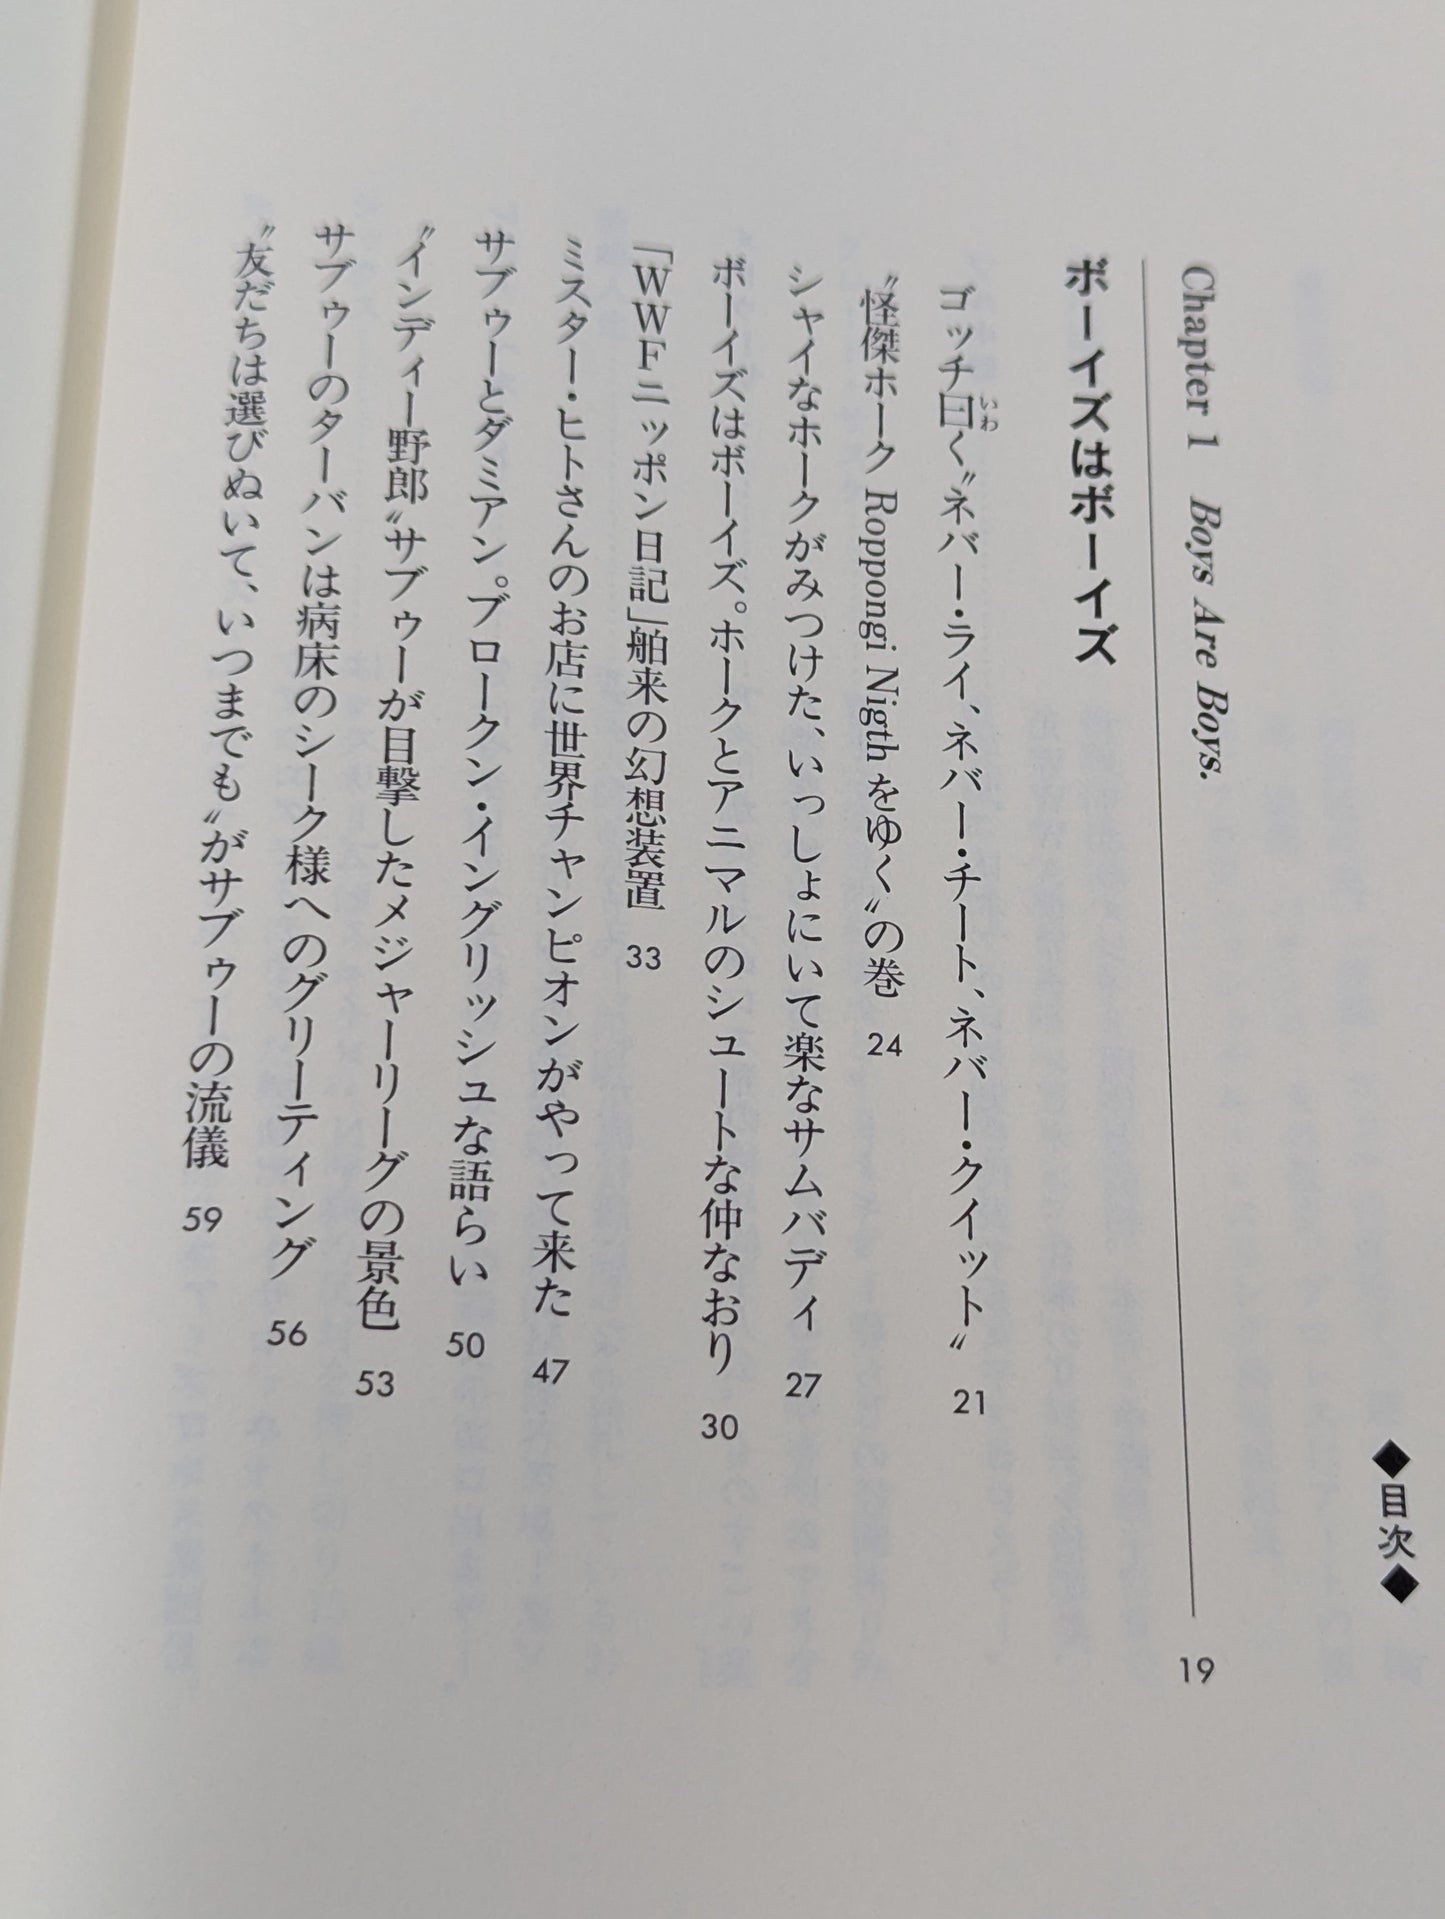 ◆目次◆
Chapter 1　Boys Are Boys.　19
ボーイズはボーイズ
ゴッチ曰く〝ネバー・ライ、ネバー・チート、ネバー・クイット〟　21
いわ
〝怪傑ホーク Roppongi Nigth をゆく〟の巻　24
シャイなホークがみつけた、いっしょにいて楽なサムバディ　27
ボーイズはボーイズ。ホークとアニマルのシュートな仲なおり　30
「WWFニッポン日記」舶来の幻想装置　33
ミスター・ヒトさんのお店に世界チャンピオンがやって来た　47
サブゥーとダミアン。ブロークン・イングリッシュな語らい　50
〝インディー野郎〟サブゥーが目撃したメジャーリーグの景色　53
サブゥーのターバンは病床のシーク様へのグリーティング　56
〝友だちは選びぬいて、いつまでも〟がサブゥーの流儀　59